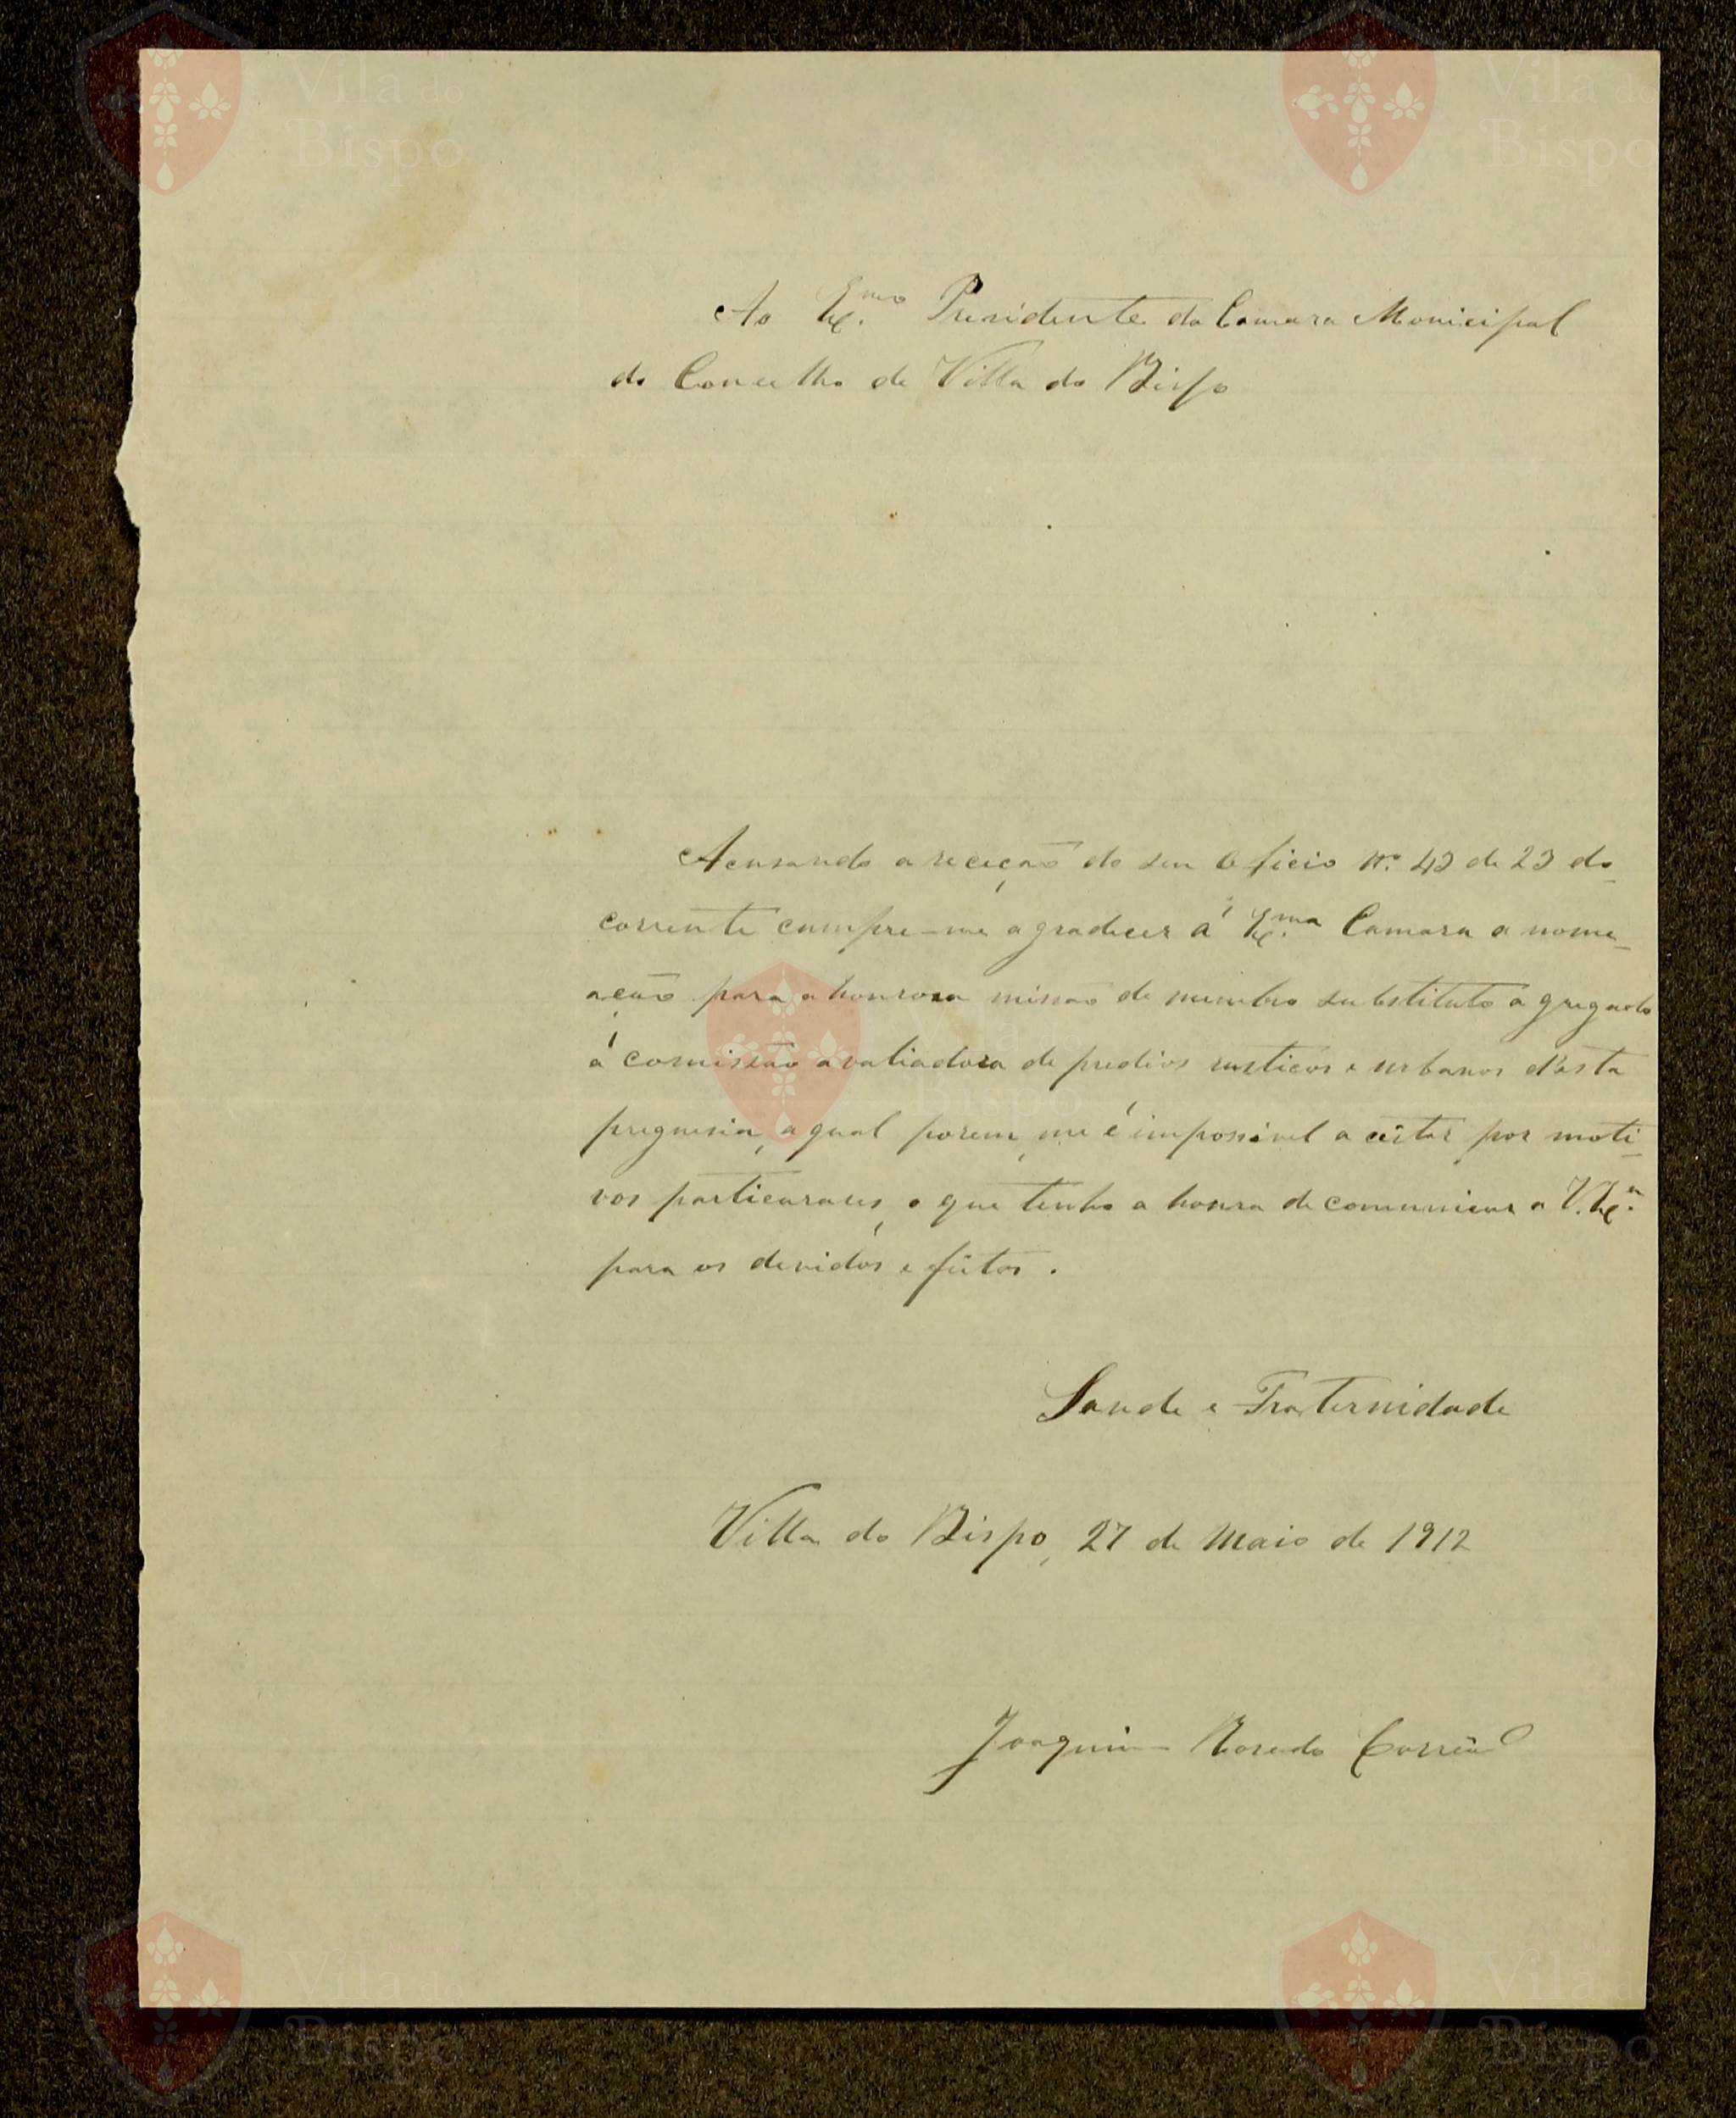 Vila do
Bispo
Vila do
Bispo
Ao Ex.mo Presidente da Camara Monicipal
do Concelho de Villa do Bispo
Acusando a receção do seu Oficio Nº 43 de 23 do
corrente cumpre-me agradecer á Ex.ma Camara a nome-
ação para a honrosa missão de membro substituto agregado
á comissão avaliadora de predios rusticos e urbanos d'esta
freguesia, a qual porem, me é impossivel aceitar por moti-
vos particurares, o que tenho a honra de comunicar a V. Ex.a
para os devidos efeitos.
Saude e Fraternidade
Villa do Bispo, 27 de Maio de 1912
Joaquim Corrêa
Bispo
Vila do
Bispo
Vila do
Bispo